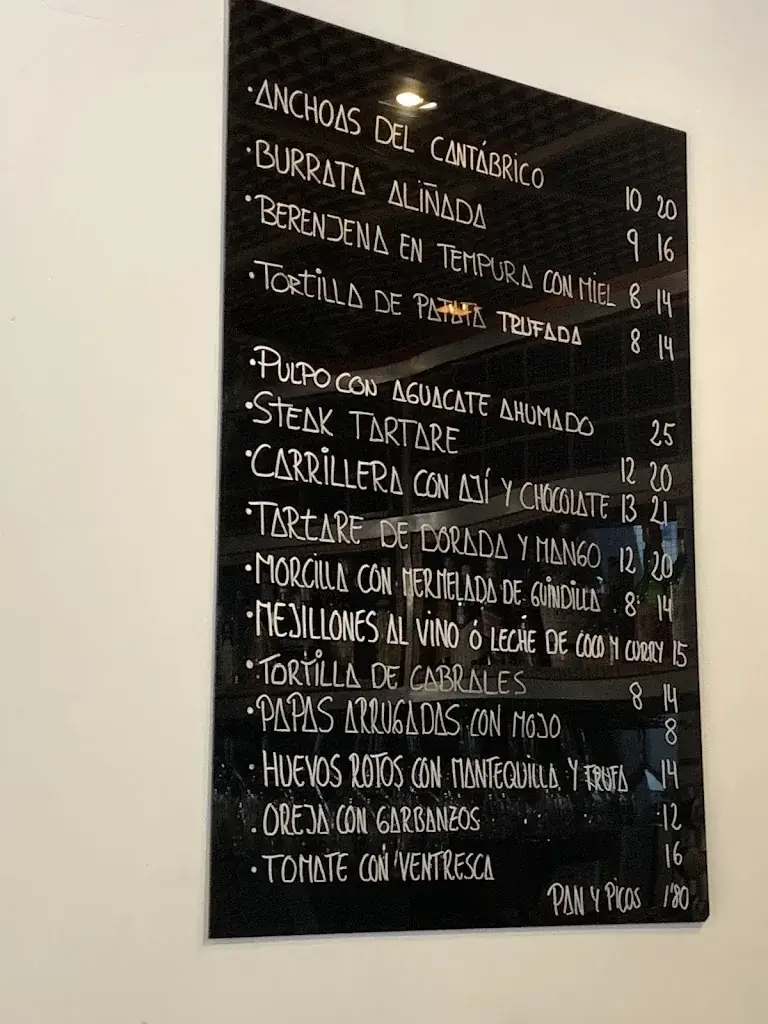 ·ANCHOAS DEL CANTÁBRICO 10 20
·BURRATA ALIÑADA 9 16
·BERENJENA EN TEMPURA CON MIEL 8 14
·TORTILLA DE PATATA TRUFADA 8 14
·PULPO CON AGUACATE AHUMADO 25
·STEAK TARTARE 12 20
·CARRILLERA CON AJÍ Y CHOCOLATE 13 21
·TARTARE DE DORADA Y MANGO 12 20
·MORCILLA CON MERMELADA DE GUINDILLA 8 14
·MEJILLONES AL VINO Ó LECHE DE COCO Y CURRY 15
·TORTILLA DE CABRALES 8 14
·PAPAS ARRUGADAS CON MOJO 8
·HUEVOS ROTOS CON MANTEQUILLA Y TRUFA 14
·OREJA CON GARBANZOS 12
·TOMATE CON VENTRESCA 16
PAN Y PICOS 1'80